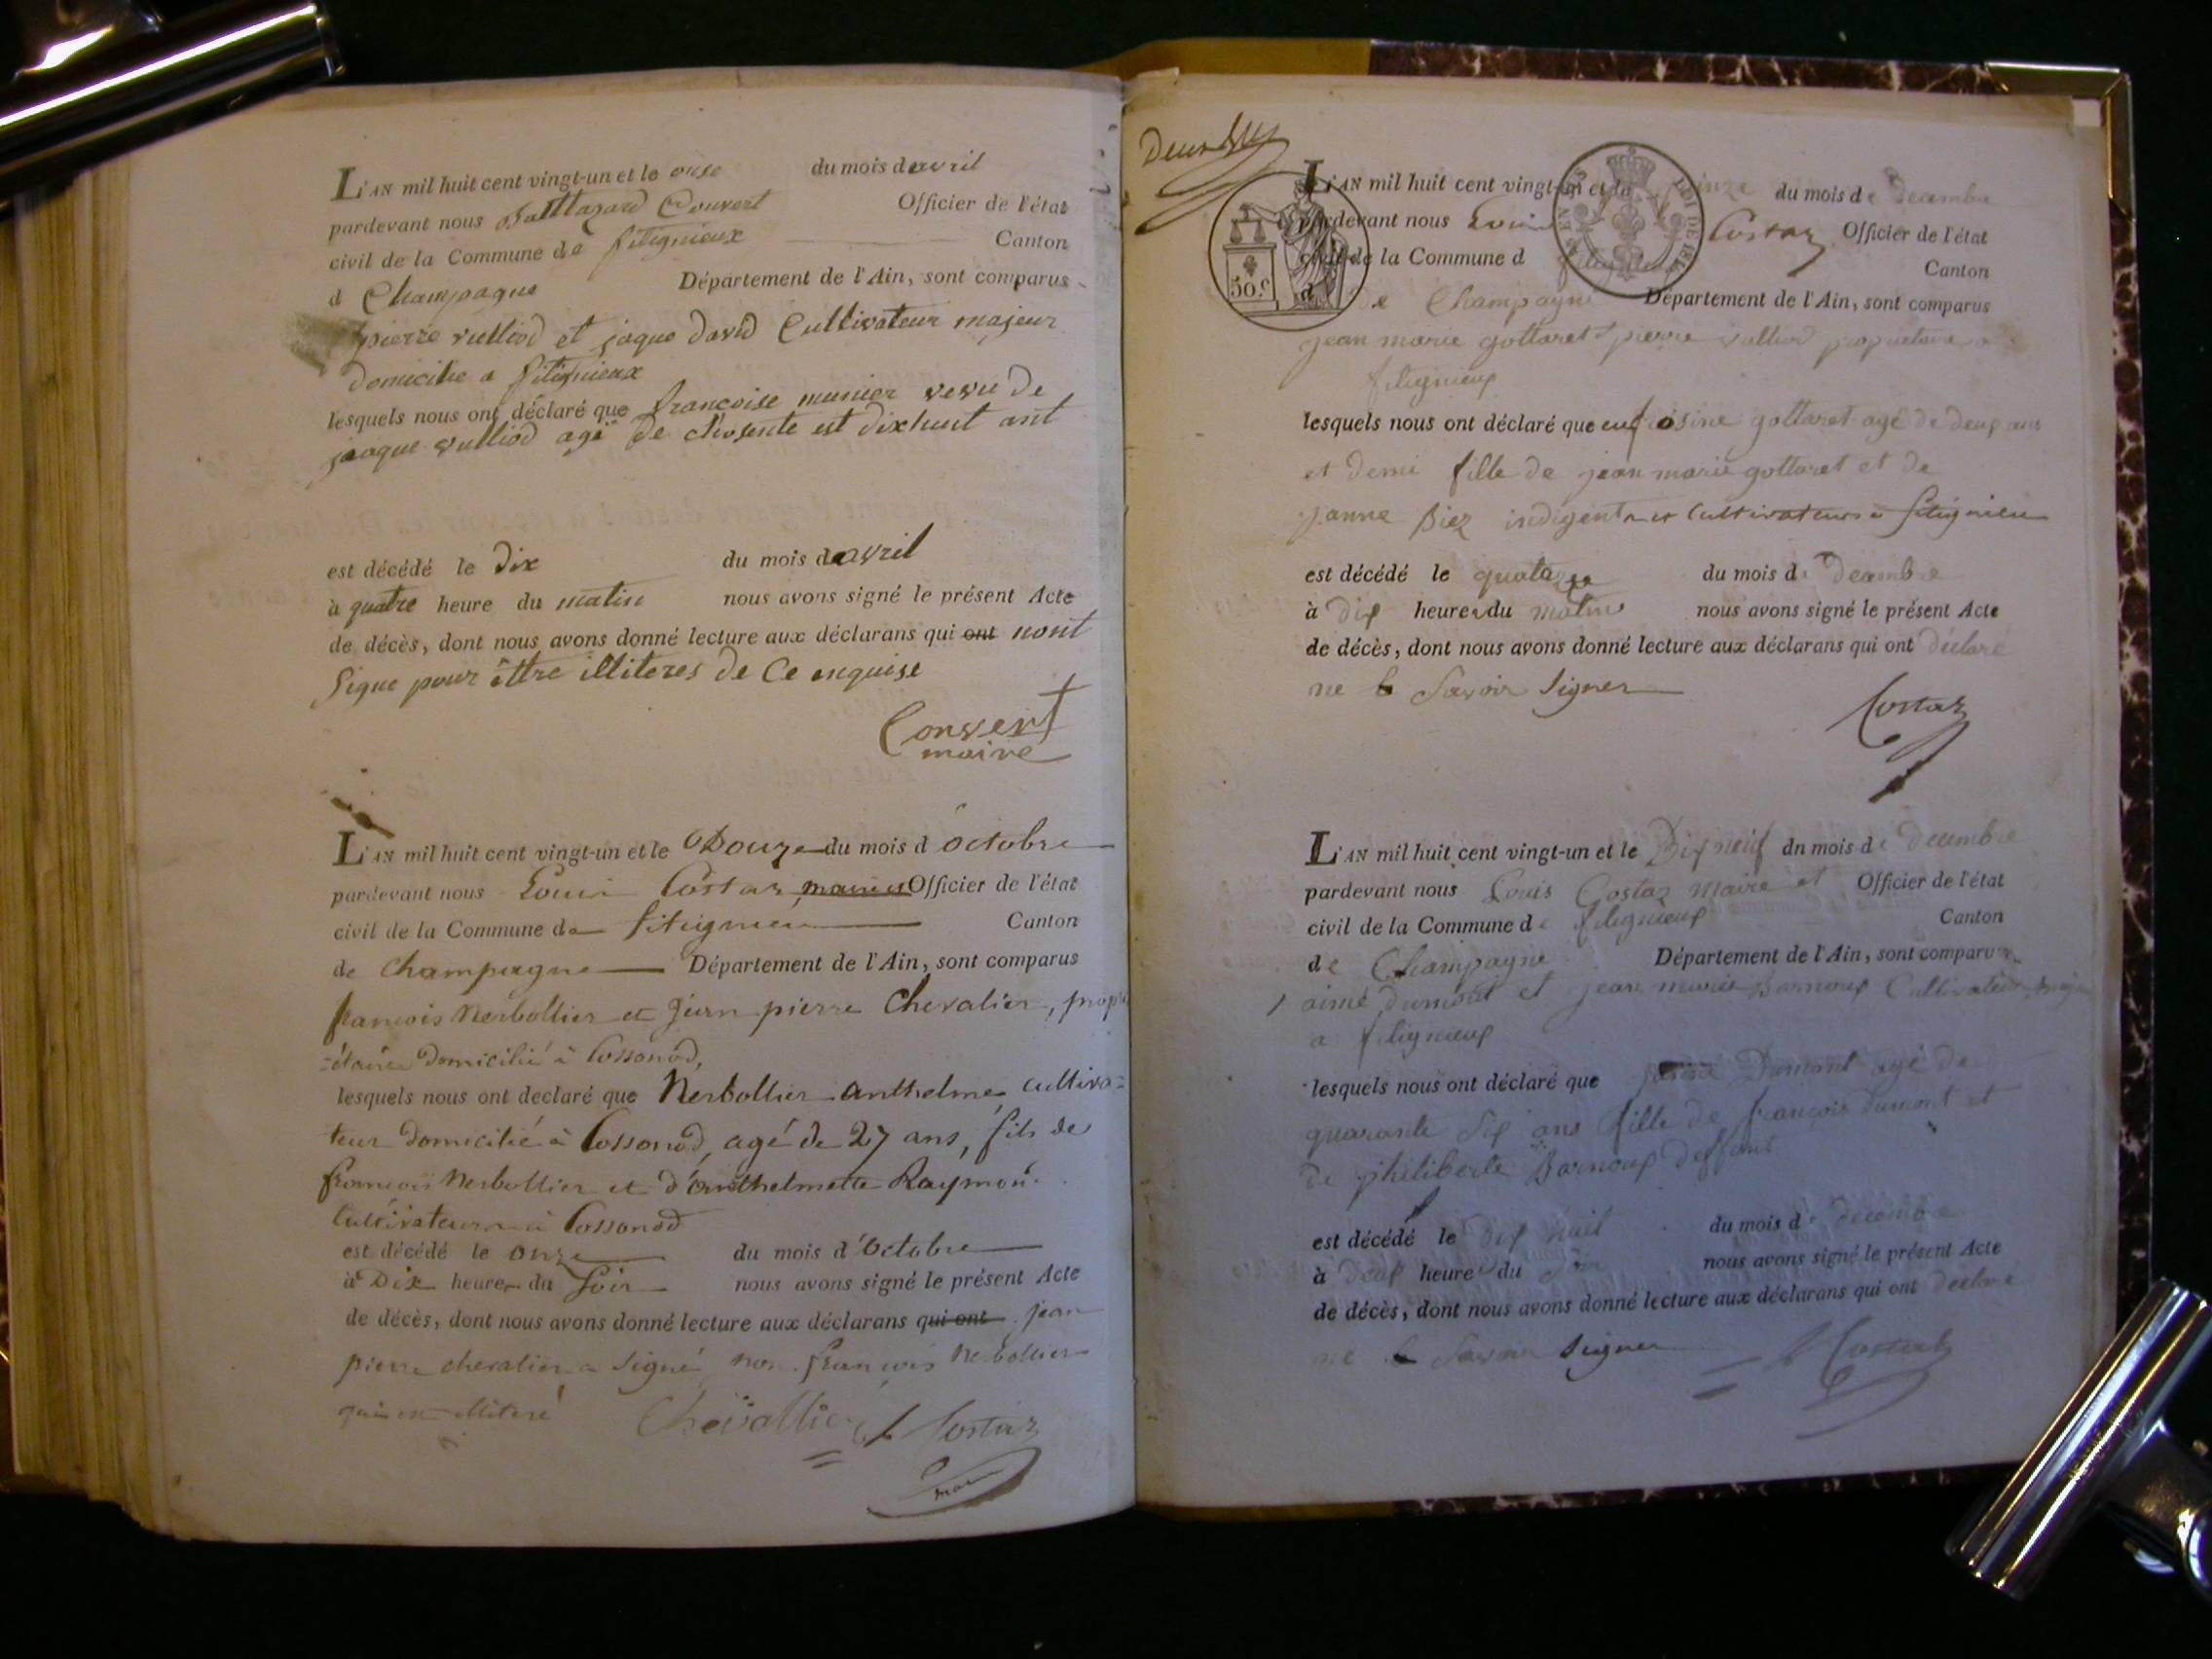 L'AN mil huit cent vingt-un et le onse du mois d avril
pardevant nous Balthazard Convert Officier de l'état
civil de la Commune de fitignieux Canton
d Champagne Département de l'Ain, sont comparus
pierre vulliod et jaque david Cultivateur majeur
domicilie a fitignieux
lesquels nous ont déclaré que francoise munier vevu de
jacque vulliod agé de choisente est dixhuit ant
est décédé le dix du mois d avril
à quatre heure du matin nous avons signé le présent Acte
de décès, dont nous avons donné lecture aux déclarans qui ont nont
Signe pour êttre illiteres de Ce enquise
Convert
maire
L'AN mil huit cent vingt-un et le Douze du mois d octobre
pardevant nous Louis Costaz maire et Officier de l'état
civil de la Commune de fitignieu Canton
de Champagne Département de l'Ain, sont comparus
françois Nerbollier et Jean pierre Chevalier, propri
-étaire domicilié à Cossonod,
lesquels nous ont declaré que Nerbollier anthelme cultiva=
teur domicilié à Cossonod, agé de 27 ans, fils de
françois Nerbollier et d'anthelmette Raymon
Cultivateurs à Cossonod
est décédé le onze du mois d'Octobre
à Dix heures du Soir nous avons signé le présent Acte
de décès, dont nous avons donné lecture aux déclarans qui ont jean
pierre chevalier a signé non françois Nerbollier
qui est illiteré
Chevallier L Costaz
maire
Deux
L'AN mil huit cent vingt-un et le quinze du mois de decembre
pardevant nous Louis Costaz Officier de l'état
civil de la Commune d fitignieux Canton
de Champagne Département de l'Ain, sont comparus
50 c
jean marie gottaret pierre vulliod propriétaire a
fitignieux
lesquels nous ont déclaré que eufrosine gottaret agé de deux ans
et demi fille de jean marie gottaret et de
janne Biez indigent et Cultivateurs à fitignieu
est décédé le quatorze du mois de Decembre
à dix heures du matin nous avons signé le présent Acte
de décès, dont nous avons donné lecture aux déclarans qui ont déclaré
ne le Savoir signer
Costaz
L'AN mil huit cent vingt-un et le Dix neuf du mois de decembre
pardevant nous Louis Costaz Maire et Officier de l'état
civil de la Commune de fitignieux Canton
de Champagne Département de l'Ain, sont comparus
aimé Dumont et jean marie Barnoux Cultivateur
a fitignieux
lesquels nous ont déclaré que Dumont agé de
quarante six ans fille de françois dumont et
de philiberte Barnoux deffunt
est décédé le dix huit du mois de decembre
à deux heures du Soir nous avons signé le présent Acte
de décès, dont nous avons donné lecture aux déclarans qui ont declaré
ne le Savoir Signer
L Costaz